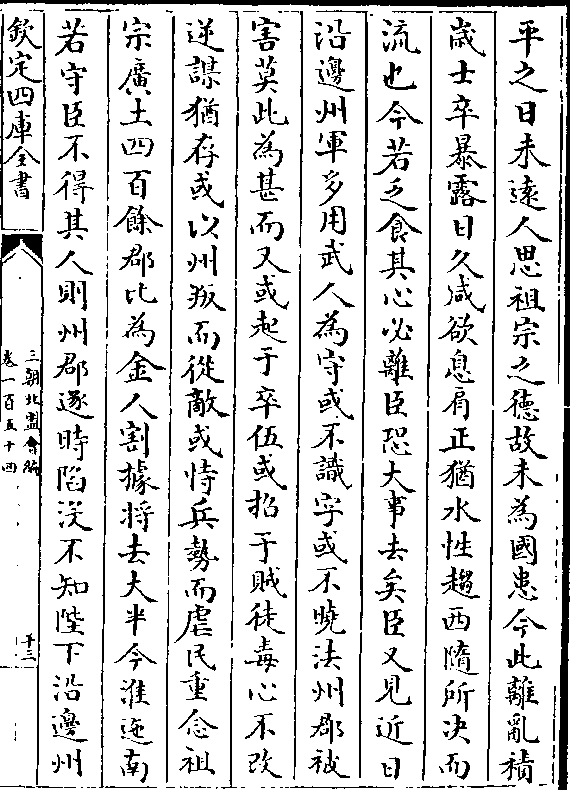 平之日未遠人思祖宗之德故未為國患今此離亂積
歲士卒暴露日久咸欲息肩正猶水性趨西隨所決而
流也今若乏食其心必離臣恐大事去矣臣又見近日
沿邊州軍多用武人為守或不識字或不曉法州郡被
害莫此為甚而又或起于卒伍或招于賊徒毒心不改
逆謀猶存或以州叛而從敵或恃兵勢而虐民重念祖
宗廣土四百餘郡比為金人割據將去大半今淮迤南
若守臣不得其人則州郡逐時陷没不知陛下沿邊州
欽定四庫全書
三朝北盟會編
卷一百五十四